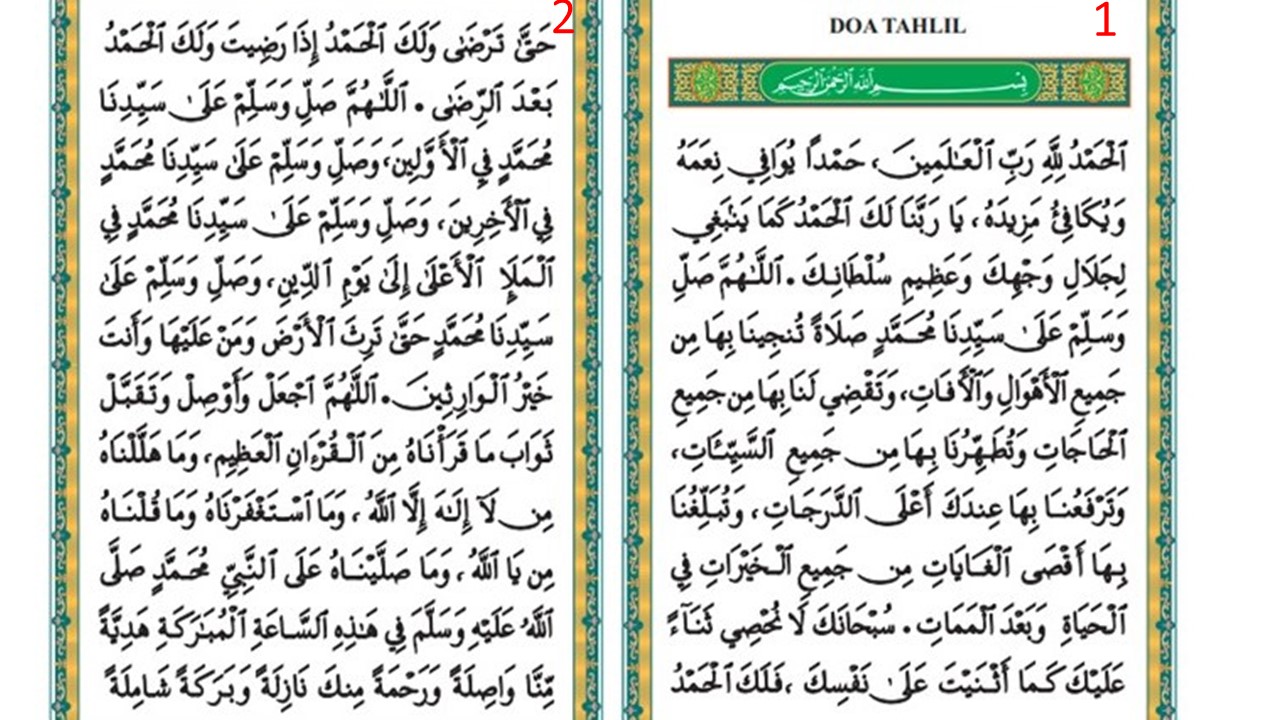 DOA TAHLIL
1
بِسْمِ ٱللَّهِ ٱلرَّحْمَٰنِ ٱلرَّحِيمِ
ٱلْحَمْدُ لِلَّهِ رَبِّ ٱلْعَـٰلَمِينَ، حَمْدًا يُوَافِي نِعَمَهُ
وَيُكَافِئُ مَزِيدَهُ، يَا رَبَّنَا لَكَ ٱلْحَمْدُ كَمَا يَنۢبَغِي
لِجَلَالِ وَجْهِكَ وَعَظِيمِ سُلْطَانِكَ. ٱللَّـٰهُمَّ صَلِّ
وَسَلِّمْ عَلَىٰ سَيِّدِنَا مُحَمَّدٍ صَلَاةً تُنجِينَا بِهَا مِن
جَمِيعِ ٱلْأَهْوَالِ وَٱلْأَفَاتِ، وَتَقْضِي لَنَا بِهَا مِن جَمِيعِ
ٱلْحَاجَاتِ وَتُطَهِّرُنَا بِهَا مِن جَمِيعِ ٱلسَّيِّـَٔاتِ،
وَتَرْفَعُنَا بِهَا عِندَكَ أَعْلَى ٱلدَّرَجَاتِ، وَتُبَلِّغُنَا
بِهَا أَقْصَى ٱلْغَايَاتِ مِن جَمِيعِ ٱلْخَيْرَاتِ فِي
ٱلْحَيَاةِ وَبَعْدَ ٱلْمَمَاتِ. سُبْحَانَكَ لَا نُحْصِي ثَنَآءً
عَلَيْكَ كَمَا أَثْنَيْتَ عَلَىٰ نَفْسِكَ، فَلَكَ ٱلْحَمْدُ
2
حَتَّىٰ تَرْضَىٰ وَلَكَ ٱلْحَمْدُ إِذَا رَضِيتَ وَلَكَ ٱلْحَمْدُ
بَعْدَ ٱلرِّضَىٰ. ٱللَّـٰهُمَّ صَلِّ وَسَلِّمْ عَلَىٰ سَيِّدِنَا
مُحَمَّدٍ فِي ٱلْأَوَّلِينَ، وَصَلِّ وَسَلِّمْ عَلَىٰ سَيِّدِنَا مُحَمَّدٍ
فِي ٱلْأَخِرِينَ، وَصَلِّ وَسَلِّمْ عَلَىٰ سَيِّدِنَا مُحَمَّدٍ فِي
ٱلْمَلَإِ ٱلْأَعْلَىٰ إِلَىٰ يَوْمِ ٱلدِّينِ، وَصَلِّ وَسَلِّمْ عَلَىٰ
سَيِّدِنَا مُحَمَّدٍ حَتَّىٰ تَرِثَ ٱلْأَرْضَ وَمَنْ عَلَيْهَا وَأَنتَ
خَيْرُ ٱلْوَارِثِينَ. ٱللَّـٰهُمَّ ٱجْعَلْ وَأَوْصِلْ وَتَقَبَّلْ
ثَوَابَ مَا قَرَأْنَاهُ مِنَ ٱلْقُرْءَانِ ٱلْعَظِيمِ، وَمَا هَلَّلْنَاهُ
مِن لَآ إِلَـٰهَ إِلَّا ٱللَّهُ، وَمَا ٱسْتَغْفَرْنَاهُ وَمَا قُلْنَاهُ
مِن يَا ٱللَّهُ، وَمَا صَلَّيْنَاهُ عَلَى ٱلنَّبِيِّ مُحَمَّدٍ صَلَّى
ٱللَّهُ عَلَيْهِ وَسَلَّمَ فِي هَـٰذِهِ ٱلسَّاعَةِ ٱلْمُبَـٰرَكَةِ هَدِيَّةً
مِّنَّا وَاصِلَةً وَرَحْمَةً مِنكَ نَازِلَةً وَبَرَكَةً شَامِلَةً